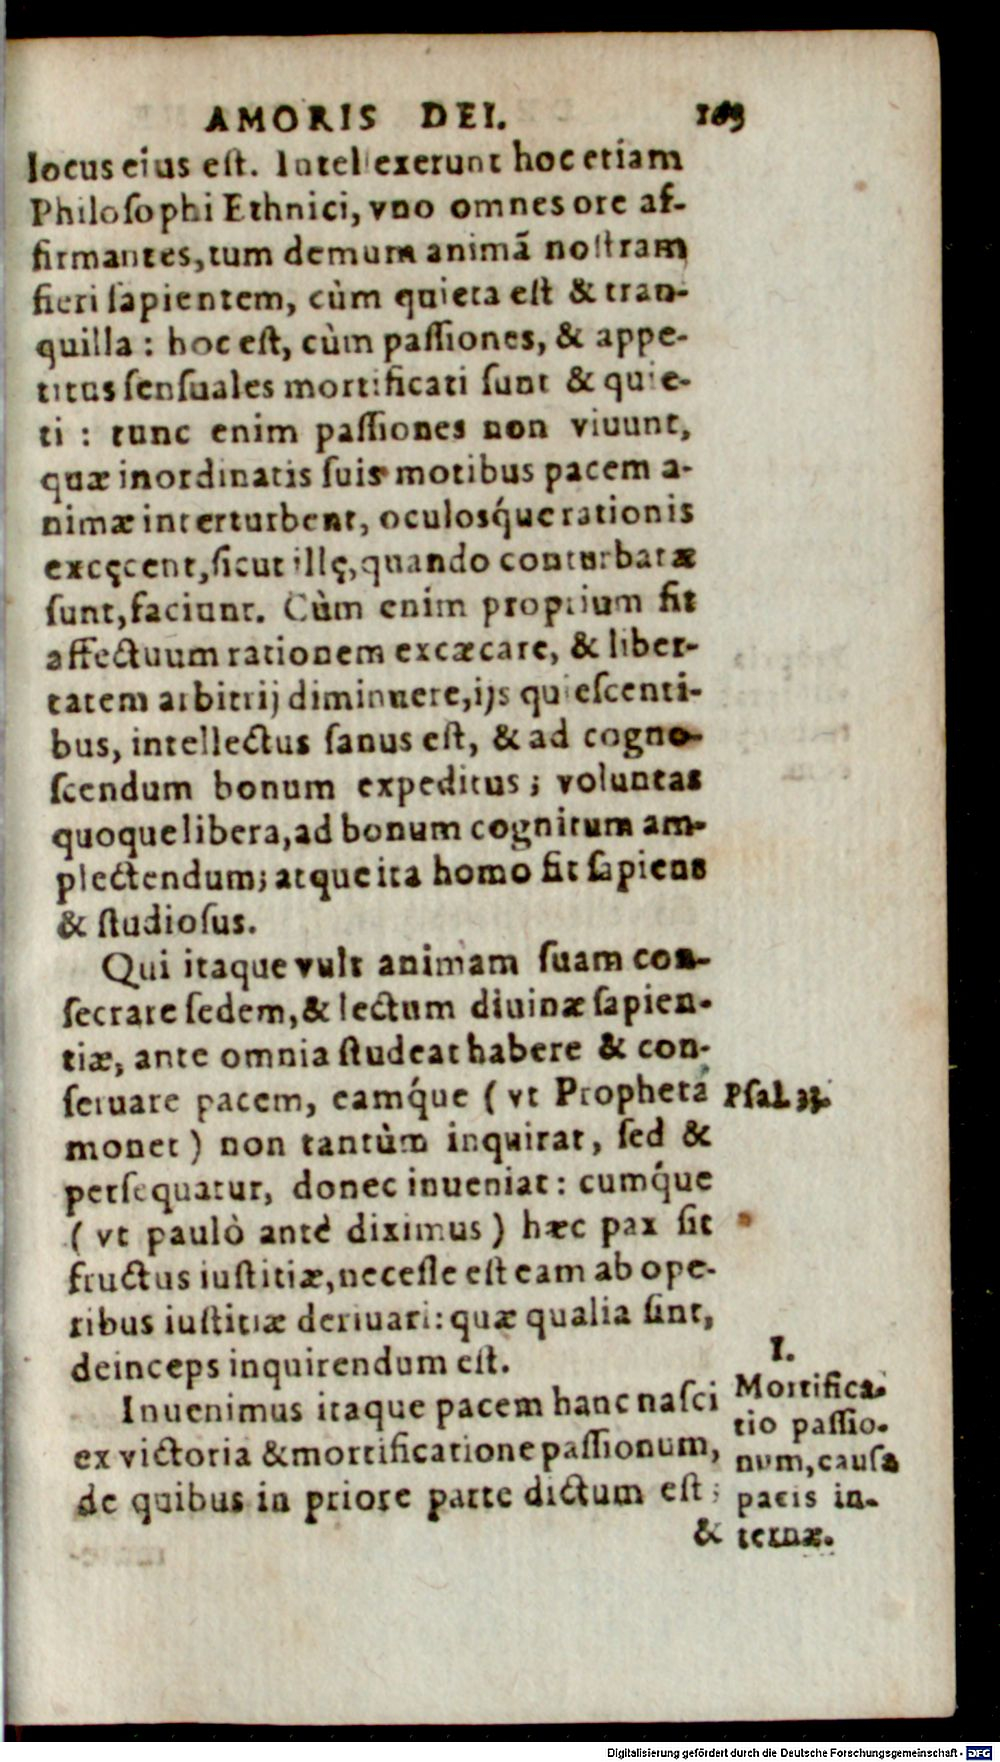 AMORIS DEI.
locus eius eſt. Intellexerunt hoc etiam
Philoſophi Ethnici, vno omnes ore af-
firmantes, tum demum animã noſtram
fieri ſapientem, cùm quieta eſt & tran-
quilla: hoc eſt, cùm paſſiones, & appe-
titus ſenſuales mortificati ſunt & quie-
ti: tunc enim paſſiones non viuunt,
quæ inordinatis ſuis motibus pacem a-
nimæ interturbent, oculosq́ue rationis
excęcent, ſicut illę, quando conturbatæ
ſunt, faciunt. Cùm enim proprium ſit
affectuum rationem excæcare, & liber-
tatem arbitrij diminuere, ijs quieſcenti-
bus, intellectus ſanus eſt, & ad cogno-
ſcendum bonum expeditus; voluntas
quoque libera, ad bonum cognitum am-
plectendum; atque ita homo fit ſapiens
& ſtudioſus.
Qui itaque vult animam ſuam con-
ſecrare ſedem, & lectum diuinæ ſapien-
tiæ, ante omnia ſtudeat habere & con-
ſeruare pacem, eamq́ue (vt Propheta
Pſal. 33.
monet) non tantùm inquirat, ſed &
perſequatur, donec inueniat: cumq́ue
(vt paulò antè diximus) hæc pax ſit
fructus iuſtitiæ, neceſſe eſt eam ab ope-
ribus iuſtitiæ deriuari: quæ qualia ſint,
deinceps inquirendum eſt.
Inuenimus itaque pacem hanc naſci
ex victoria & mortificatione paſſionum,
de quibus in priore parte dictum eſt;
&
I.
Mortifica-
tio paſſio-
num, cauſa
pacis in-
ternæ.
Digitalisierung gefördert durch die Deutsche Forschungsgemeinschaft - DFG